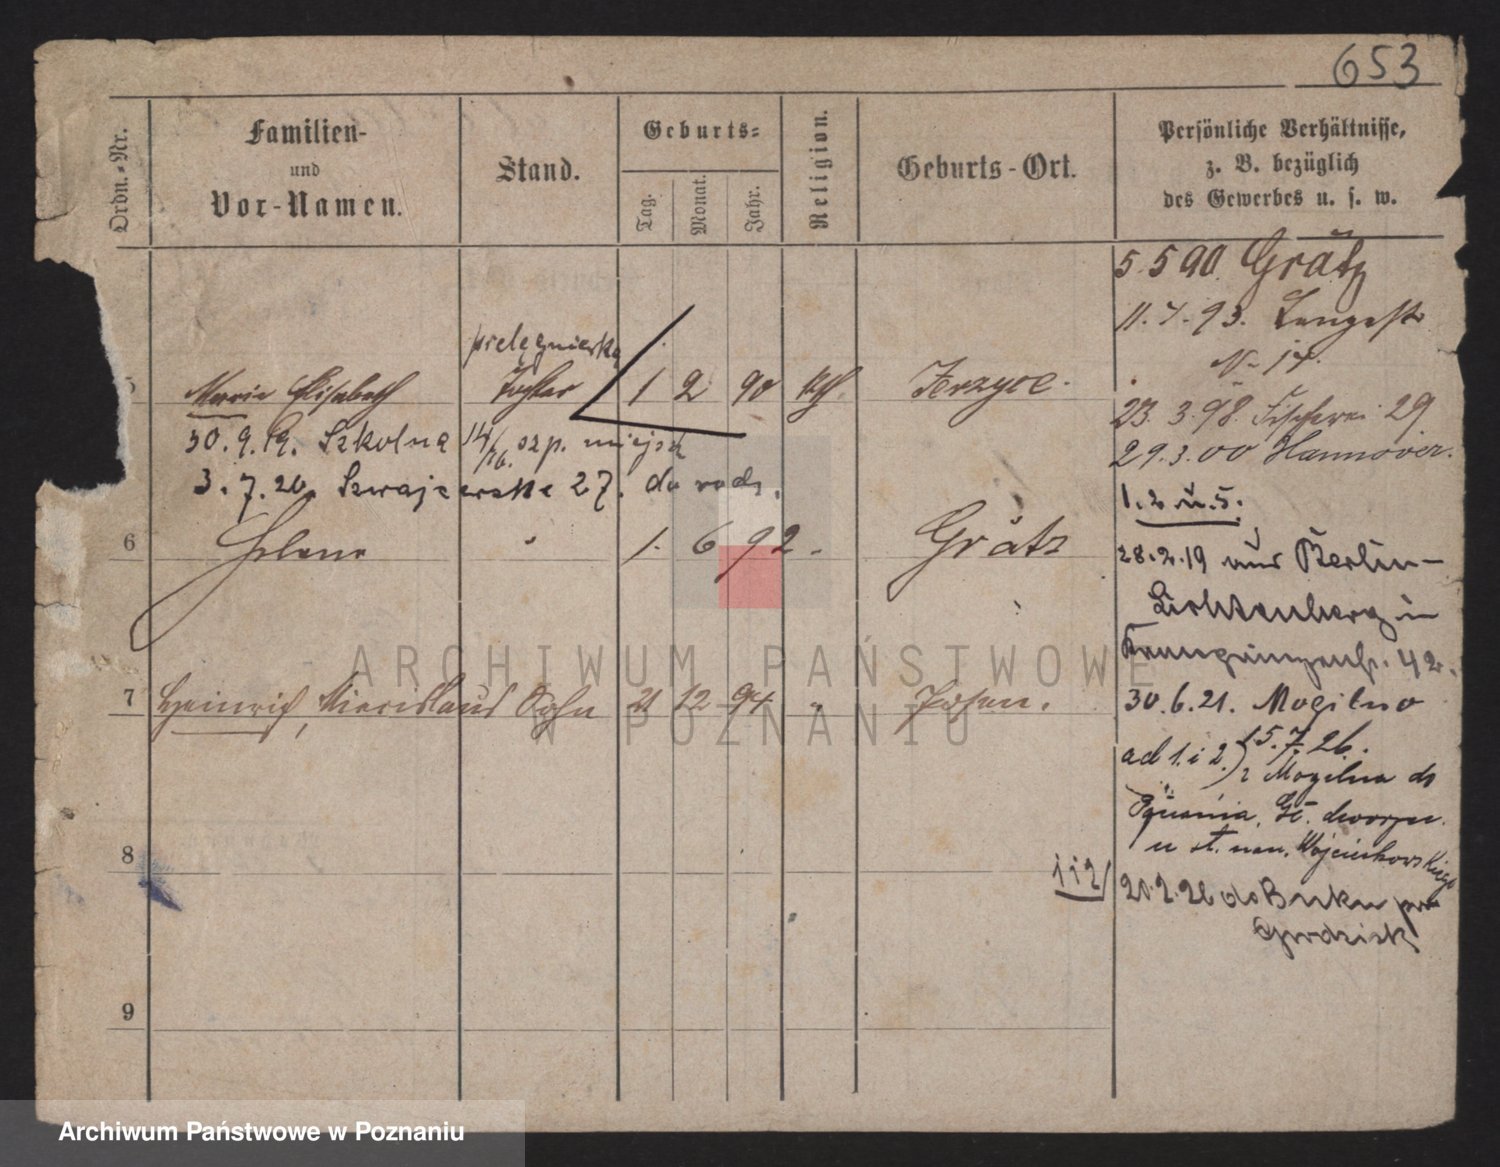 653
Ordn.-Nr.
Familien-
und
Vor-Namen.
Stand.
Geburts-
Tag.
Monat.
Jahr.
Religion.
Geburts-Ort.
Persönliche Verhältnisse,
z. B. bezüglich
des Gewerbes u. s. w.
5.5 90 Grätz
11.7.93. Langestr
N. 14.
pielęgniarka
5 Marie Elisabeth Tochter 1 2 90 kth. Jerzyce.
23.3.98. Fischerei 29
30.9.19. Szkolna 14/16. szp. miejsk
29.3.00 Hannover.
3.7.20. Szwajcarska 27. do rodz.
1.2 u.5.
6 Helene " 1. 6 92. Grätz
28.2.19 aus Berlin-
Lichtenberg in
42.
7 Heinrich, Miecislaus Sohn 21 12 94 " Posen.
30.6.21. Mogilno
ad 1. i 2.) 15.7.26.
z Mogilna do
Poznania, Gł. dworzec
u st. nan. Wojciechowskiego
8
1 i 2/ 20.2.26 do Buku pow
Grodzisk
9
ARCHIWUM PAŃSTWOWE
W POZNANIU
Archiwum Państwowe w Poznaniu